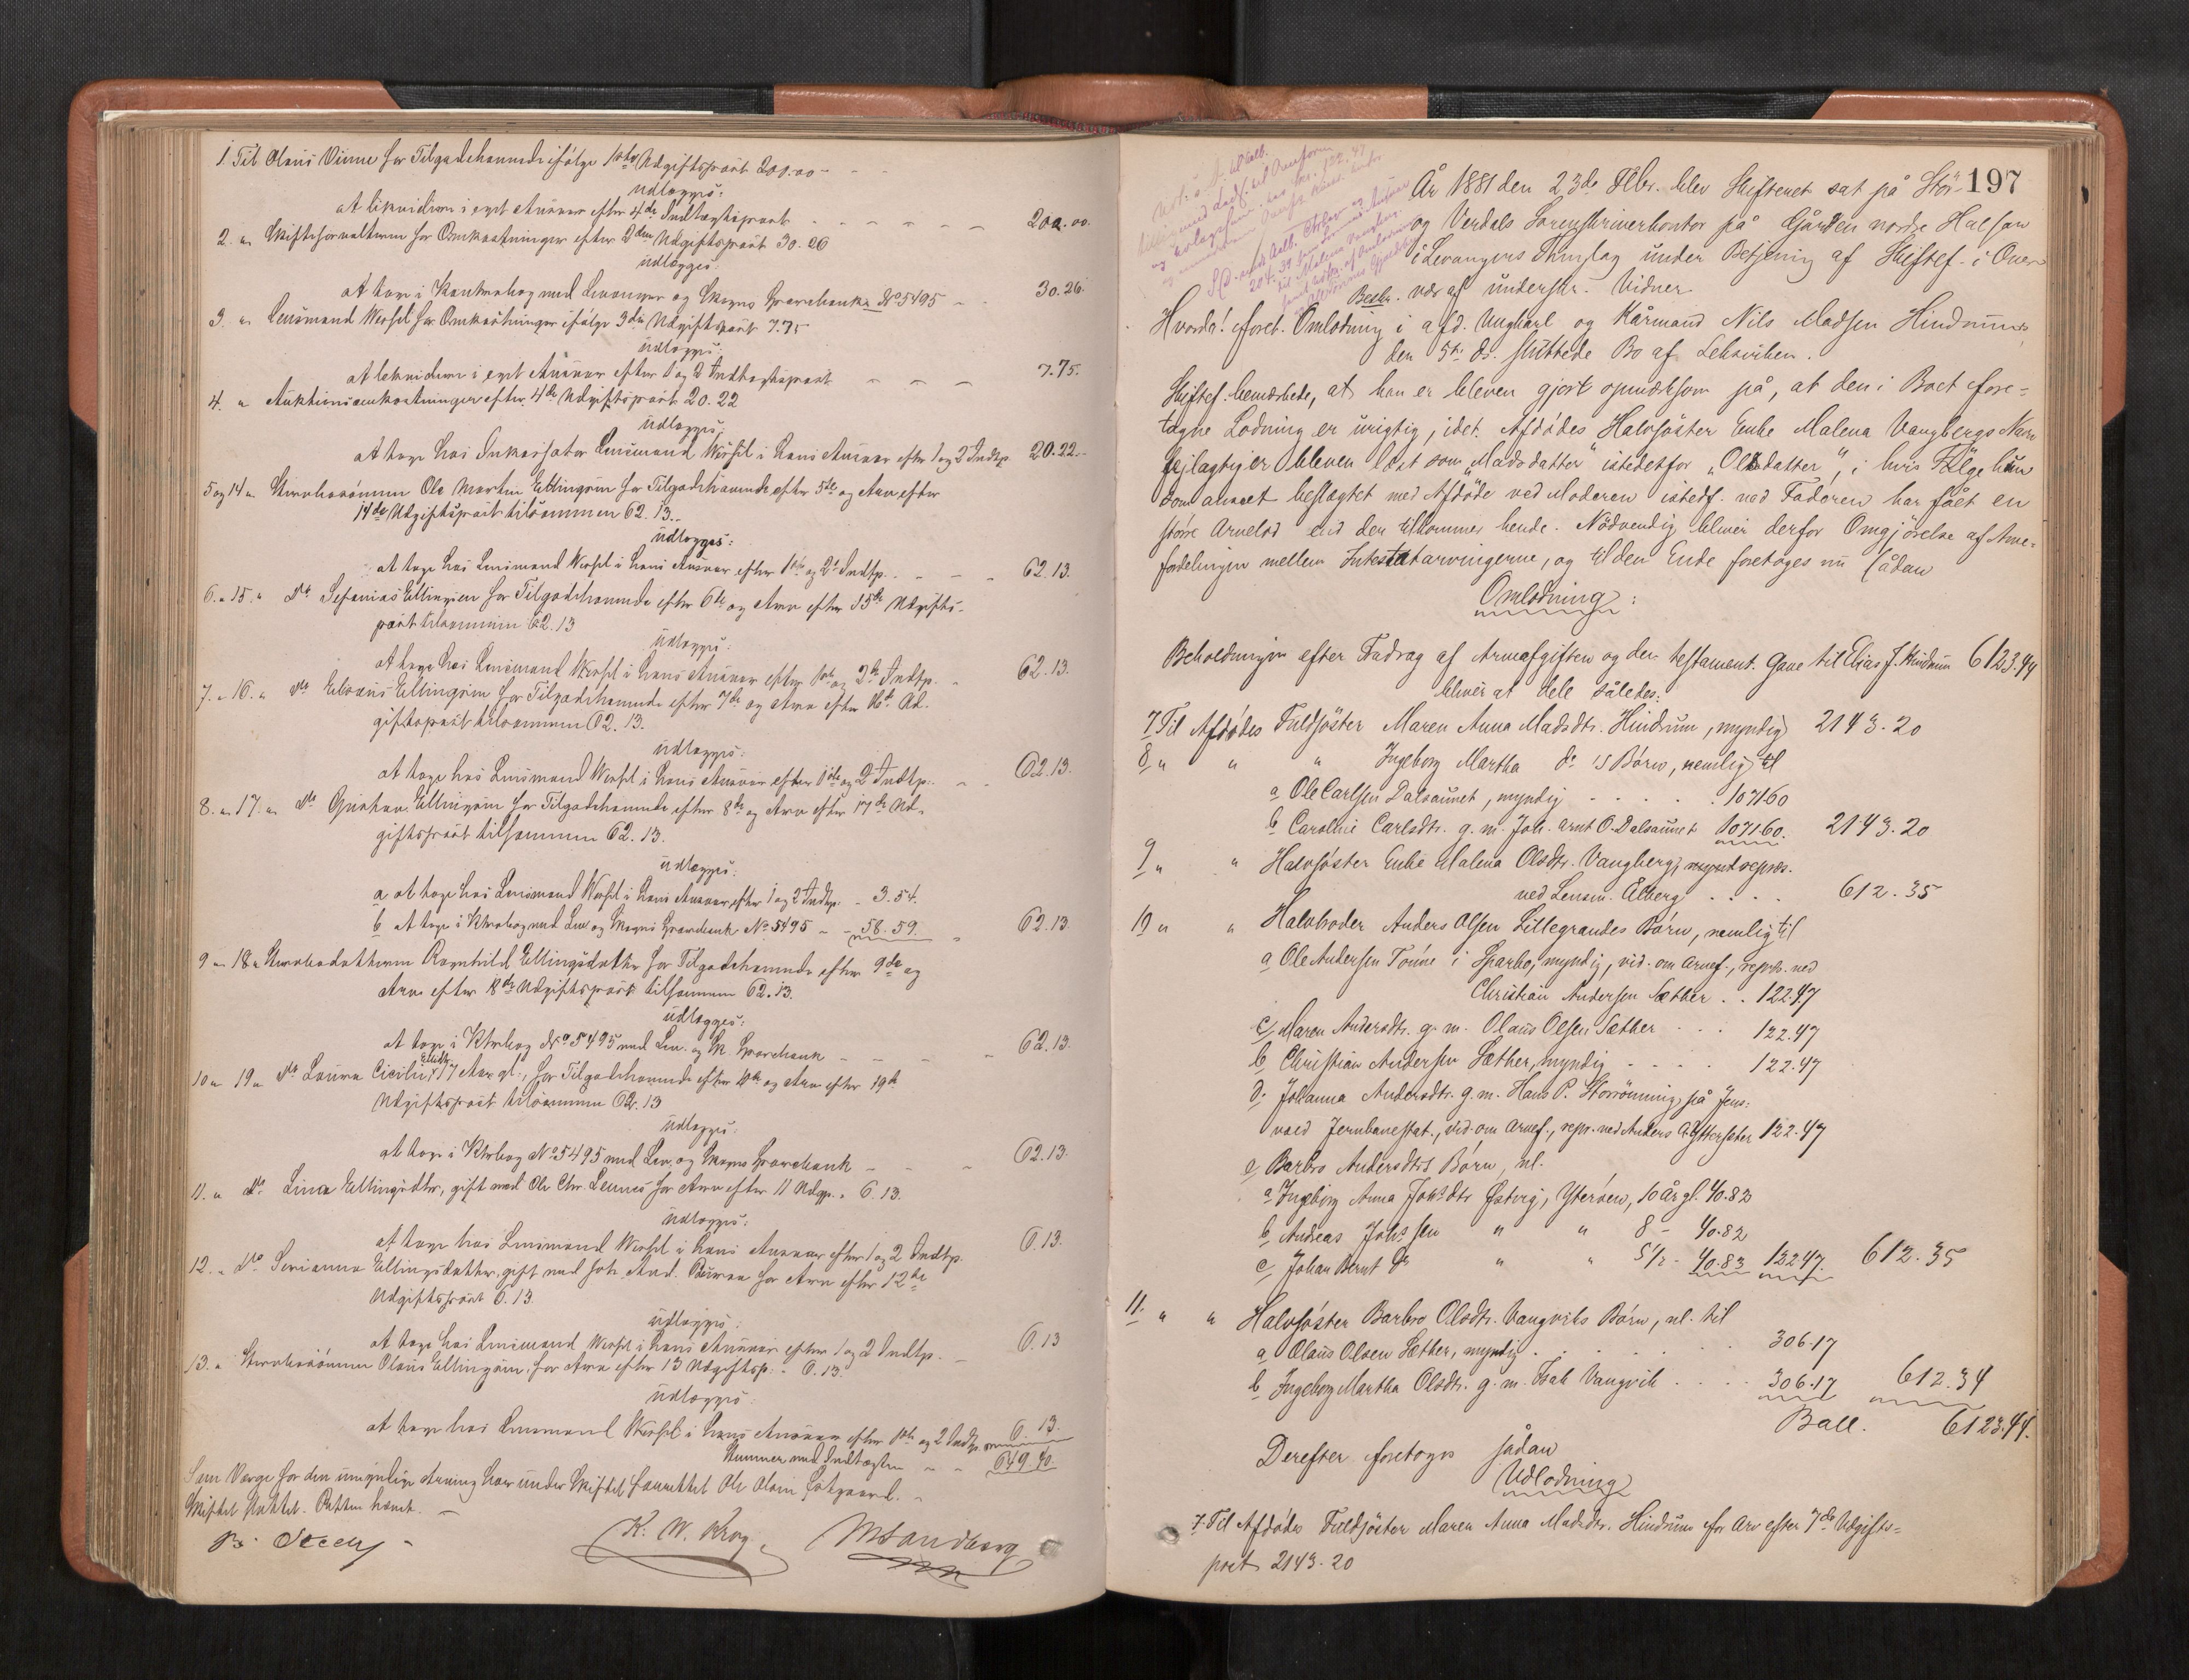 1. Til Olaus Vinne for Tilgodehavende ifølge 1ste Udgiftspost 200.00
udlægges:
at likvidere i eget Ansvar efter 4de Indtægtspost 200.00.
2. " Skifteforvalteren for Omkostninger efter 2den Udgiftspost 30.26
udlægges:
at tage i Kontrabog med Levanger og Skogns Sparebank No 5495 30.26.
3. " Lensmand Wessel for Omkostninger ifølge 3die Udgiftspost 7.75
udlægges:
at likvidere i eget Ansvar efter 1 og 2 Indtægtspost 7.75.
4. " Auktionsomkostninger efter 4de Udgiftspost 20.22
udlægges:
at tage hos Inkassator Lensmand Wessel i hans Ansvar efter 1 og 2 Indtp. 20.22.
5 og 14 " Stervbosønnen Ole Martin Ellingsen for Tilgodehavende efter 5te og Arv efter
14de Udgiftspost tilsammen 62.13.
udlægges:
at tage hos Lensmand Wessel i hans Ansvar efter 1ste og 2. Indtp. 62.13.
6. " 15. " do Sefanias Ellingsen for Tilgodehavende efter 6te og Arv efter 15de Udgifts-
post tilsammen 62.13
udlægges:
at tage hos Lensmand Wessel i hans Ansvar efter 1ste og 2de Indtp. 62.13.
7. " 16. " do Ellingsen for Tilgodehavende efter 7de og Arv efter 16de Ud-
giftspost tilsammen 62.13.
udlægges:
at tage hos Lensmand Wessel i hans Ansvar efter 1ste og 2 Indtp. 62.13.
8. " 17. " do Ellingsen for Tilgodehavende efter 8de og Arv efter 17de Ud-
giftspost tilsammen 62.13.
udlægges:
a at tage hos Lensmand Wessel i hans Ansvar efter 1 og 2 Indtp. 3.54.
b at tage i Ktrabog med Lev. og Skogns Sparebank No 5495 58.59. 62.13
9 " 18 " Stervbodatteren Ragnhild Ellingsdatter for Tilgodehavende efter 9de og
Arv efter 18de Udgiftspost tilsammen 62.13.
udlægges:
at tage i Ktrbog No 5495 med Lev. og Sk. Sparebank 62.13.
10 " 19 " do Laura Cicilie Ellingsdtr. 17 Aar gl., for Tilgodehavende efter 10de og Arv efter 19de
Udgiftspost tilsammen 62.13
udlægges:
at tage i Ktrbog No 5495 med Lev. og Skogns Sparebank 62.13.
11. " do Lina Ellingsdtr, gift med Ole Chr. for Arv efter 11 Udgp. 6.13.
udlægges:
at tage hos Lensmand Wessel i hans Ansvar efter 1 og 2 Indtp. 6.13.
12. " do Serianna Ellingsdatter, gift med Joh. And. for Arv efter 12de
Udgiftspost 6.13.
udlægges:
at tage hos Lensmand Wessel i hans Ansvar efter 1 og 2 Indtp. 6.13
13. " Stervbosønnen Olaus Ellingsen, for Arv efter 13 Udgiftsp. 6.13.
udlægges
at tage hos Lensmand Wessel i hans Ansvar efter 1ste og 2 Indtp. 6.13.
Stemmer med Indtægten 649.40.
Som Værge for den umyndige Arving har under Skiftet fungeret Ole Olsen
Skiftet sluttet. Retten hævet.
K. W. Krog. MSandberg
197
År 1881 den 23de Febr. blev Skifteret sat på Stør-
og Verdals Sorenskriverkontor på Gården nordre Halsan
i Levangers Thinglag under Betjening af Skiftef. i Over-
vær af underskr. Vidner.
Hvorda! Foret. Omlodning i afd. Ungkarl og Kårmand Nils Madsen Hindrums
den 5te ds. sluttede Bo af Leksviken.
Skiftef. bemærkede, at han er bleven gjort opmærksom på, at den i Boet fore-
tagne Lodning er urigtig, idet Afdødes Halvsøster Enke Malena Vangbergs Navn
fejlagtig er bleven læst som "Madsdatter" istedetfor "Olsdatter", i hvis Følge hun
som beslægtet med Afdøde ved Moderen istedf. ved Faderen har fået en
større Arvelod end der tilkommer hende. Nødvendig bliver derfor Omgjørelse af Arve-
fordelingen mellem Intestatarvingerne, og til den Ende foretages nu sådan
Omlodning:
Beholdningen efter Fradrag af Arveafgiften og den testament. Gave til Elias J. Hindrum 6123.44
bliver at dele således:
7 Til Afdødes Fuldsøster Maren Anna Madsdtr. Hindrum, myndig 2143.20
8 " " " Ingeborg Martha do 's Børn, nemlig til
a Ole Carlsen Dalsaunet, myndig 1071.60
b Caroline Carlsdtr. g. m. Joh. Arnt O. Dalsaunet 1071.60. 2143.20
9 " " Halvsøster Enke Malena Olsdtr. Vangberg, repræs.
ved Lensm. Ålberg 612.35
10 " " Halvbroder Anders Olsen Lillegrandes Børn, nemlig til
a Ole Andersen Tønne i Sparbo, myndig, vid. om Arvef., repræs. ved
Christian Andersen Sæther 122.47
c, Maren Andersdtr. g. m. Olaus Olsen Sæther 122.47
b, Christian Andersen Sæther, myndig 122.47
d. Johanna Andersdtr. g. m. Hans P. Storrønning på Jens-
vold Jernbanestat., vid. om Arvef., repr. ved Anders A. Yttersæter 122.47
e, Barbro Andersdtrs Børn, nl.
a Ingeborg Anna Johs.dtr Østvig, Yterøen, 10 år gl. 40.82
b, Andreas Johs.sen " " 8 - 40.82
c, Johan Bernt do " " 5½ - 40.83 122.47. 612.35
11. " " Halvsøster Barbro Olsdtr. Vangviks Børn, nl. til
a, Olaus Olsen Sæther, myndig 306.17
b, Ingeborg Martha Olsdtr. g. m. Isak Vangvik 306.17 612.34
Ball. 6123.44.
Derefter foretoges sådan
Udlodning
7. Til Afdødes Fuldsøster Maren Anna Madsdtr. Hindrum for Arv efter 7de Udgifts-
post 2143.20